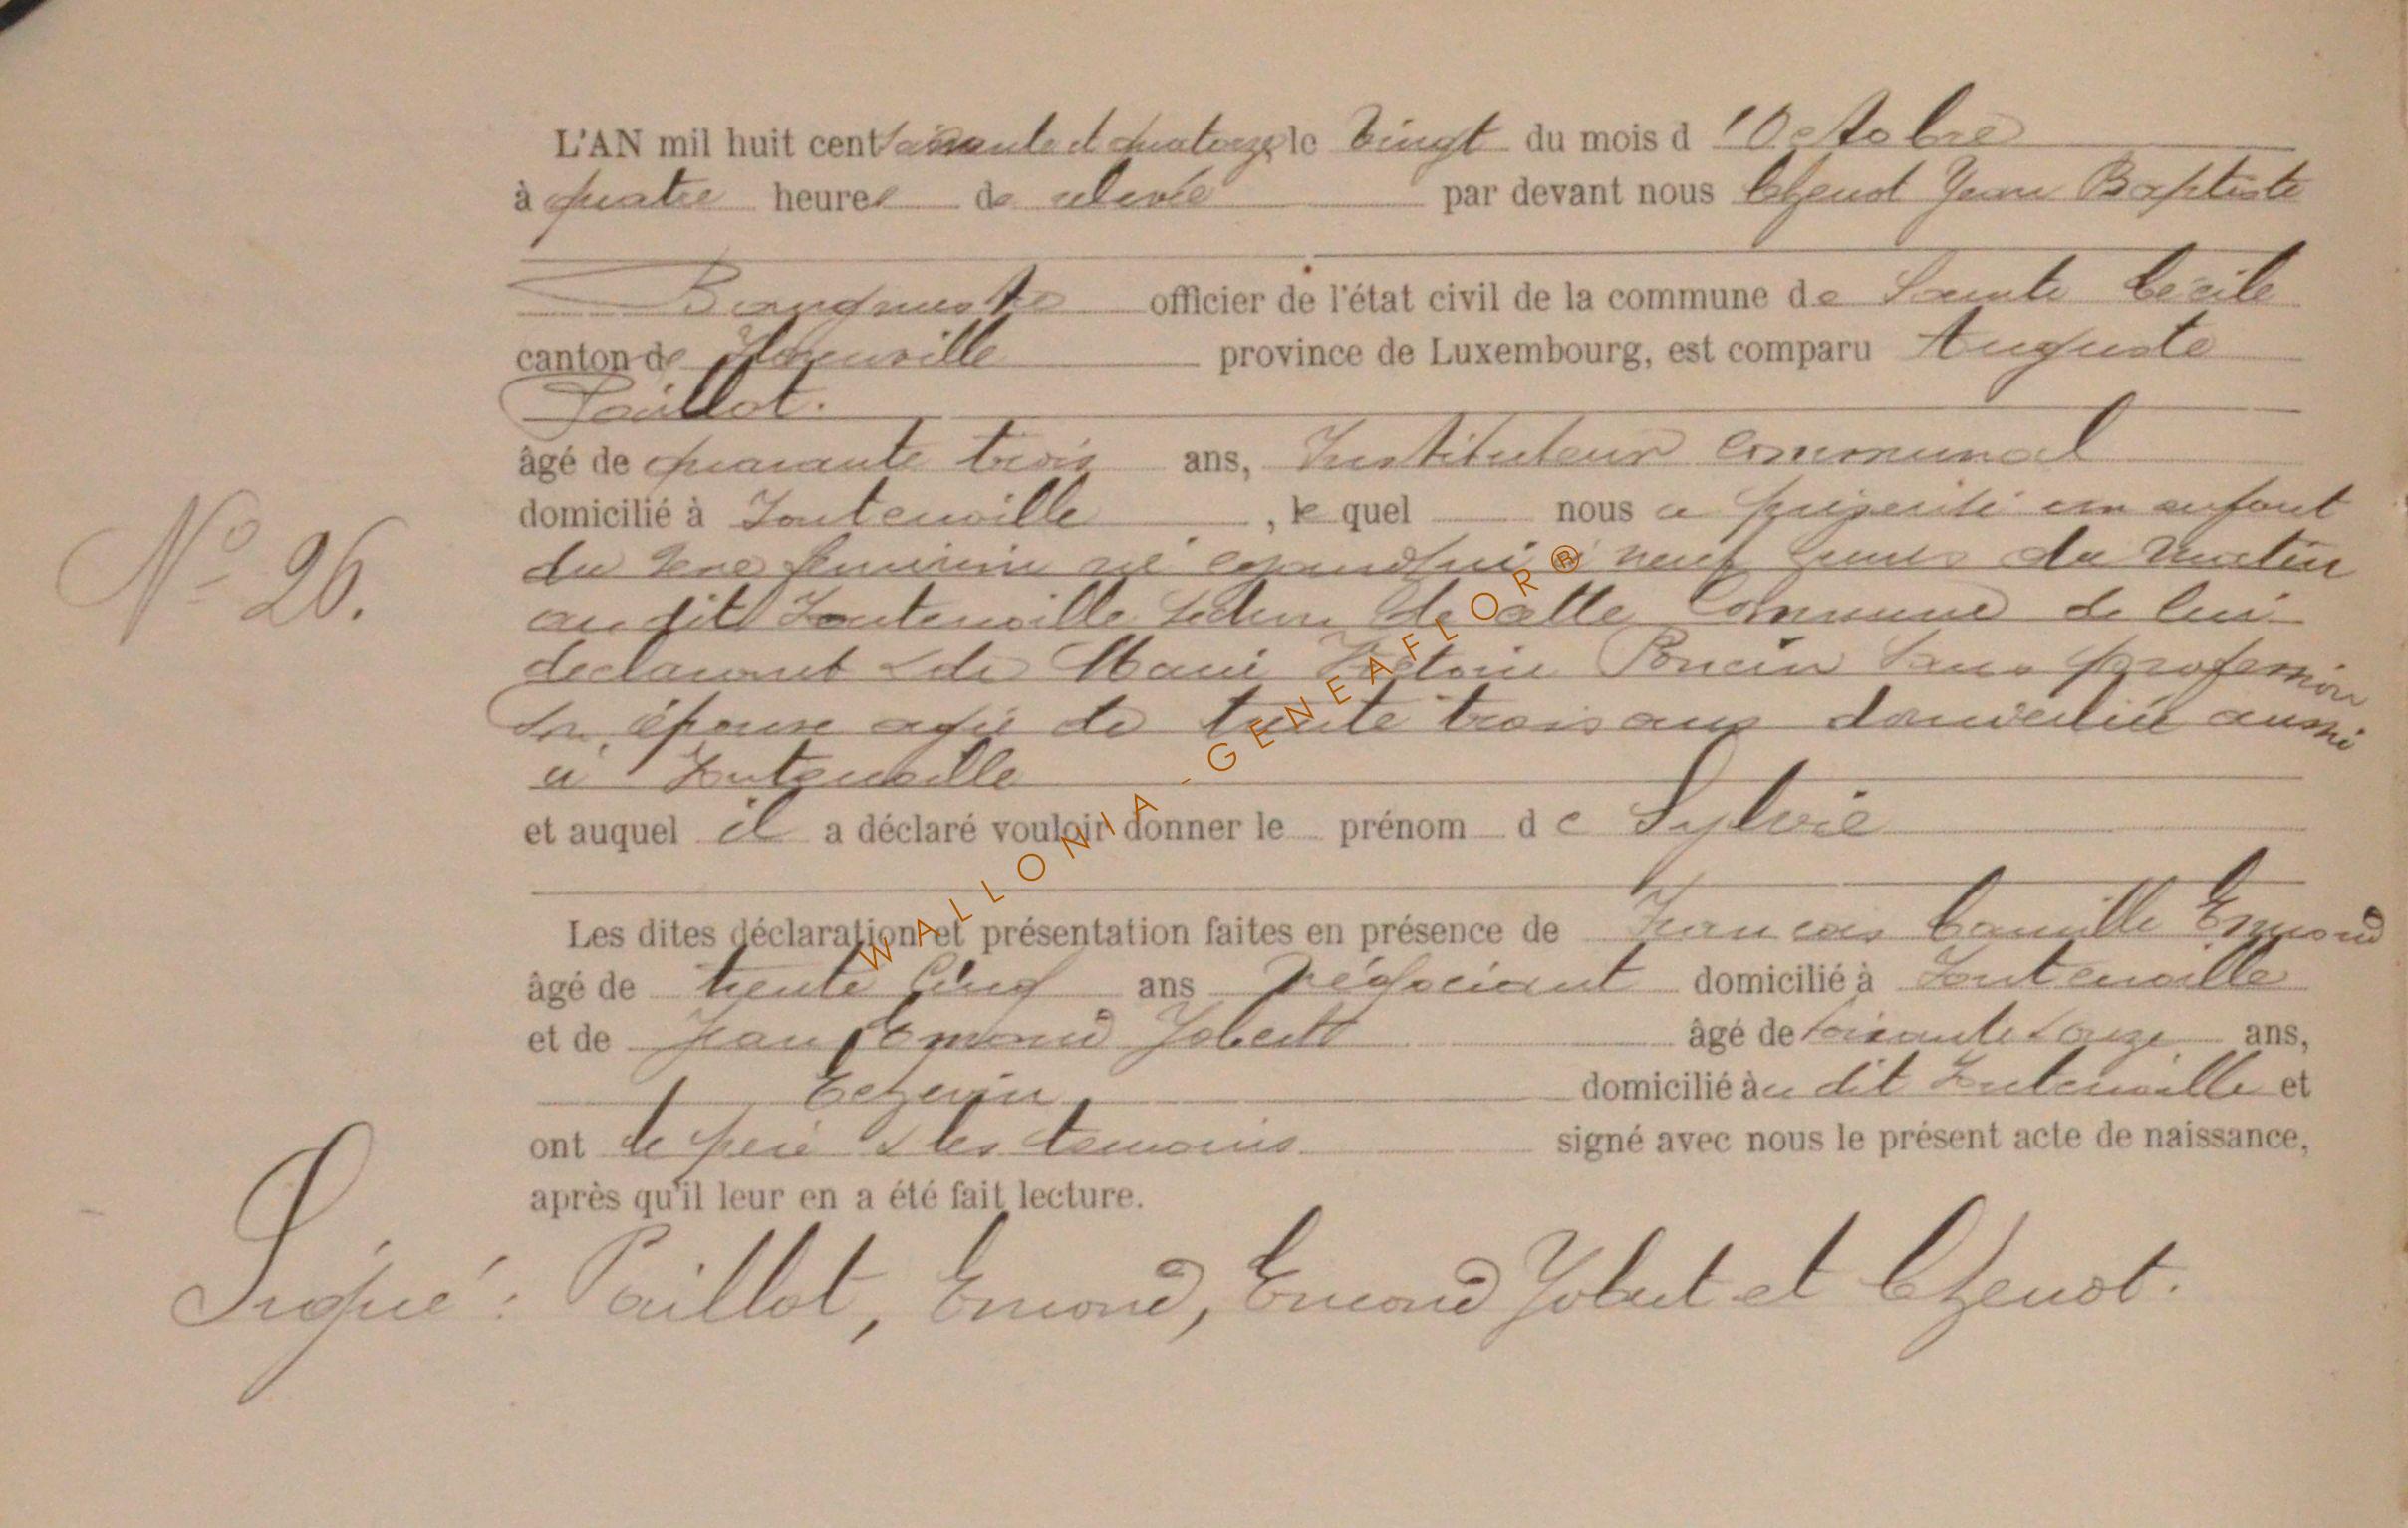 L'AN mil huit cent soixante et quatorze, le vingt du mois d'Octobre
à quatre heures de relevée par devant nous Chenot Jean Baptiste
Bourgmestre officier de l'état civil de la commune de Sainte Cécile
canton de Florenville province de Luxembourg, est comparu Auguste
Paillot.
âgé de quarante trois ans, Instituteur communal
domicilié à Fontenoille, le quel nous a présenté un enfant
N° 26.
du sexe feminin né aujourd'hui à neuf heures du matin
au dit Fontenoille section de cette Commune de lui
declarant & de Marie Victoire Poncin sans profession
son épouse agée de trente trois ans domiciliée aussi
à Fontenoille
et auquel il a déclaré vouloir donner le prénom de Sylvie
Les dites déclaration et présentation faites en présence de Francois Camille Emond
âgé de trente cinq ans négociant domicilié à Fontenoille
et de Jean Emond Jobert âgé de soixante & onze ans,
Echevin domicilié au dit Fontenoille et
ont le père & les temoins signé avec nous le présent acte de naissance,
après qu'il leur en a été fait lecture.
Signé : Paillot, Emond, Emond Jobert et Chenot.
WALLONIA - GENEAFLOR®